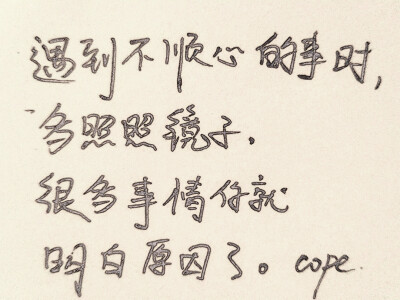 遇到不顺心的事时,
多照照镜子.
很多事情你就
明白原因了。cope